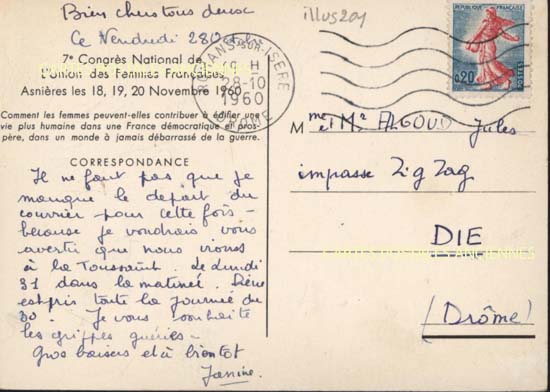 Bien chers tous deux
Ce Vendredi 28 Octobre
7e Congrès National de
L'Union des Femmes Françaises
Asnières les 18, 19, 20 Novembre 1960
Comment les femmes peuvent-elles contribuer à édifier une
vie plus humaine dans une France démocratique et pros-
père, dans un monde à jamais débarrassé de la guerre.
CORRESPONDANCE
Il ne faut pas que je
manque le départ du
courrier pour cette fois -
because je voudrais vous
avertir que nous irons
à la Toussaint. Le Lundi
31 dans la matinée.
est pris toute la journée du
30. Je vous souhaite
les grippes guéries -
Gros baisers et à bientôt
Janine
illus201
ROMANS-SUR-ISERE
H
28-10
1960
DROME
REPUBLIQUE FRANÇAISE
0,20
POSTES
Mme et Mr ALGOUD Jules
impasse Zig Zag
DIE
(Drôme)